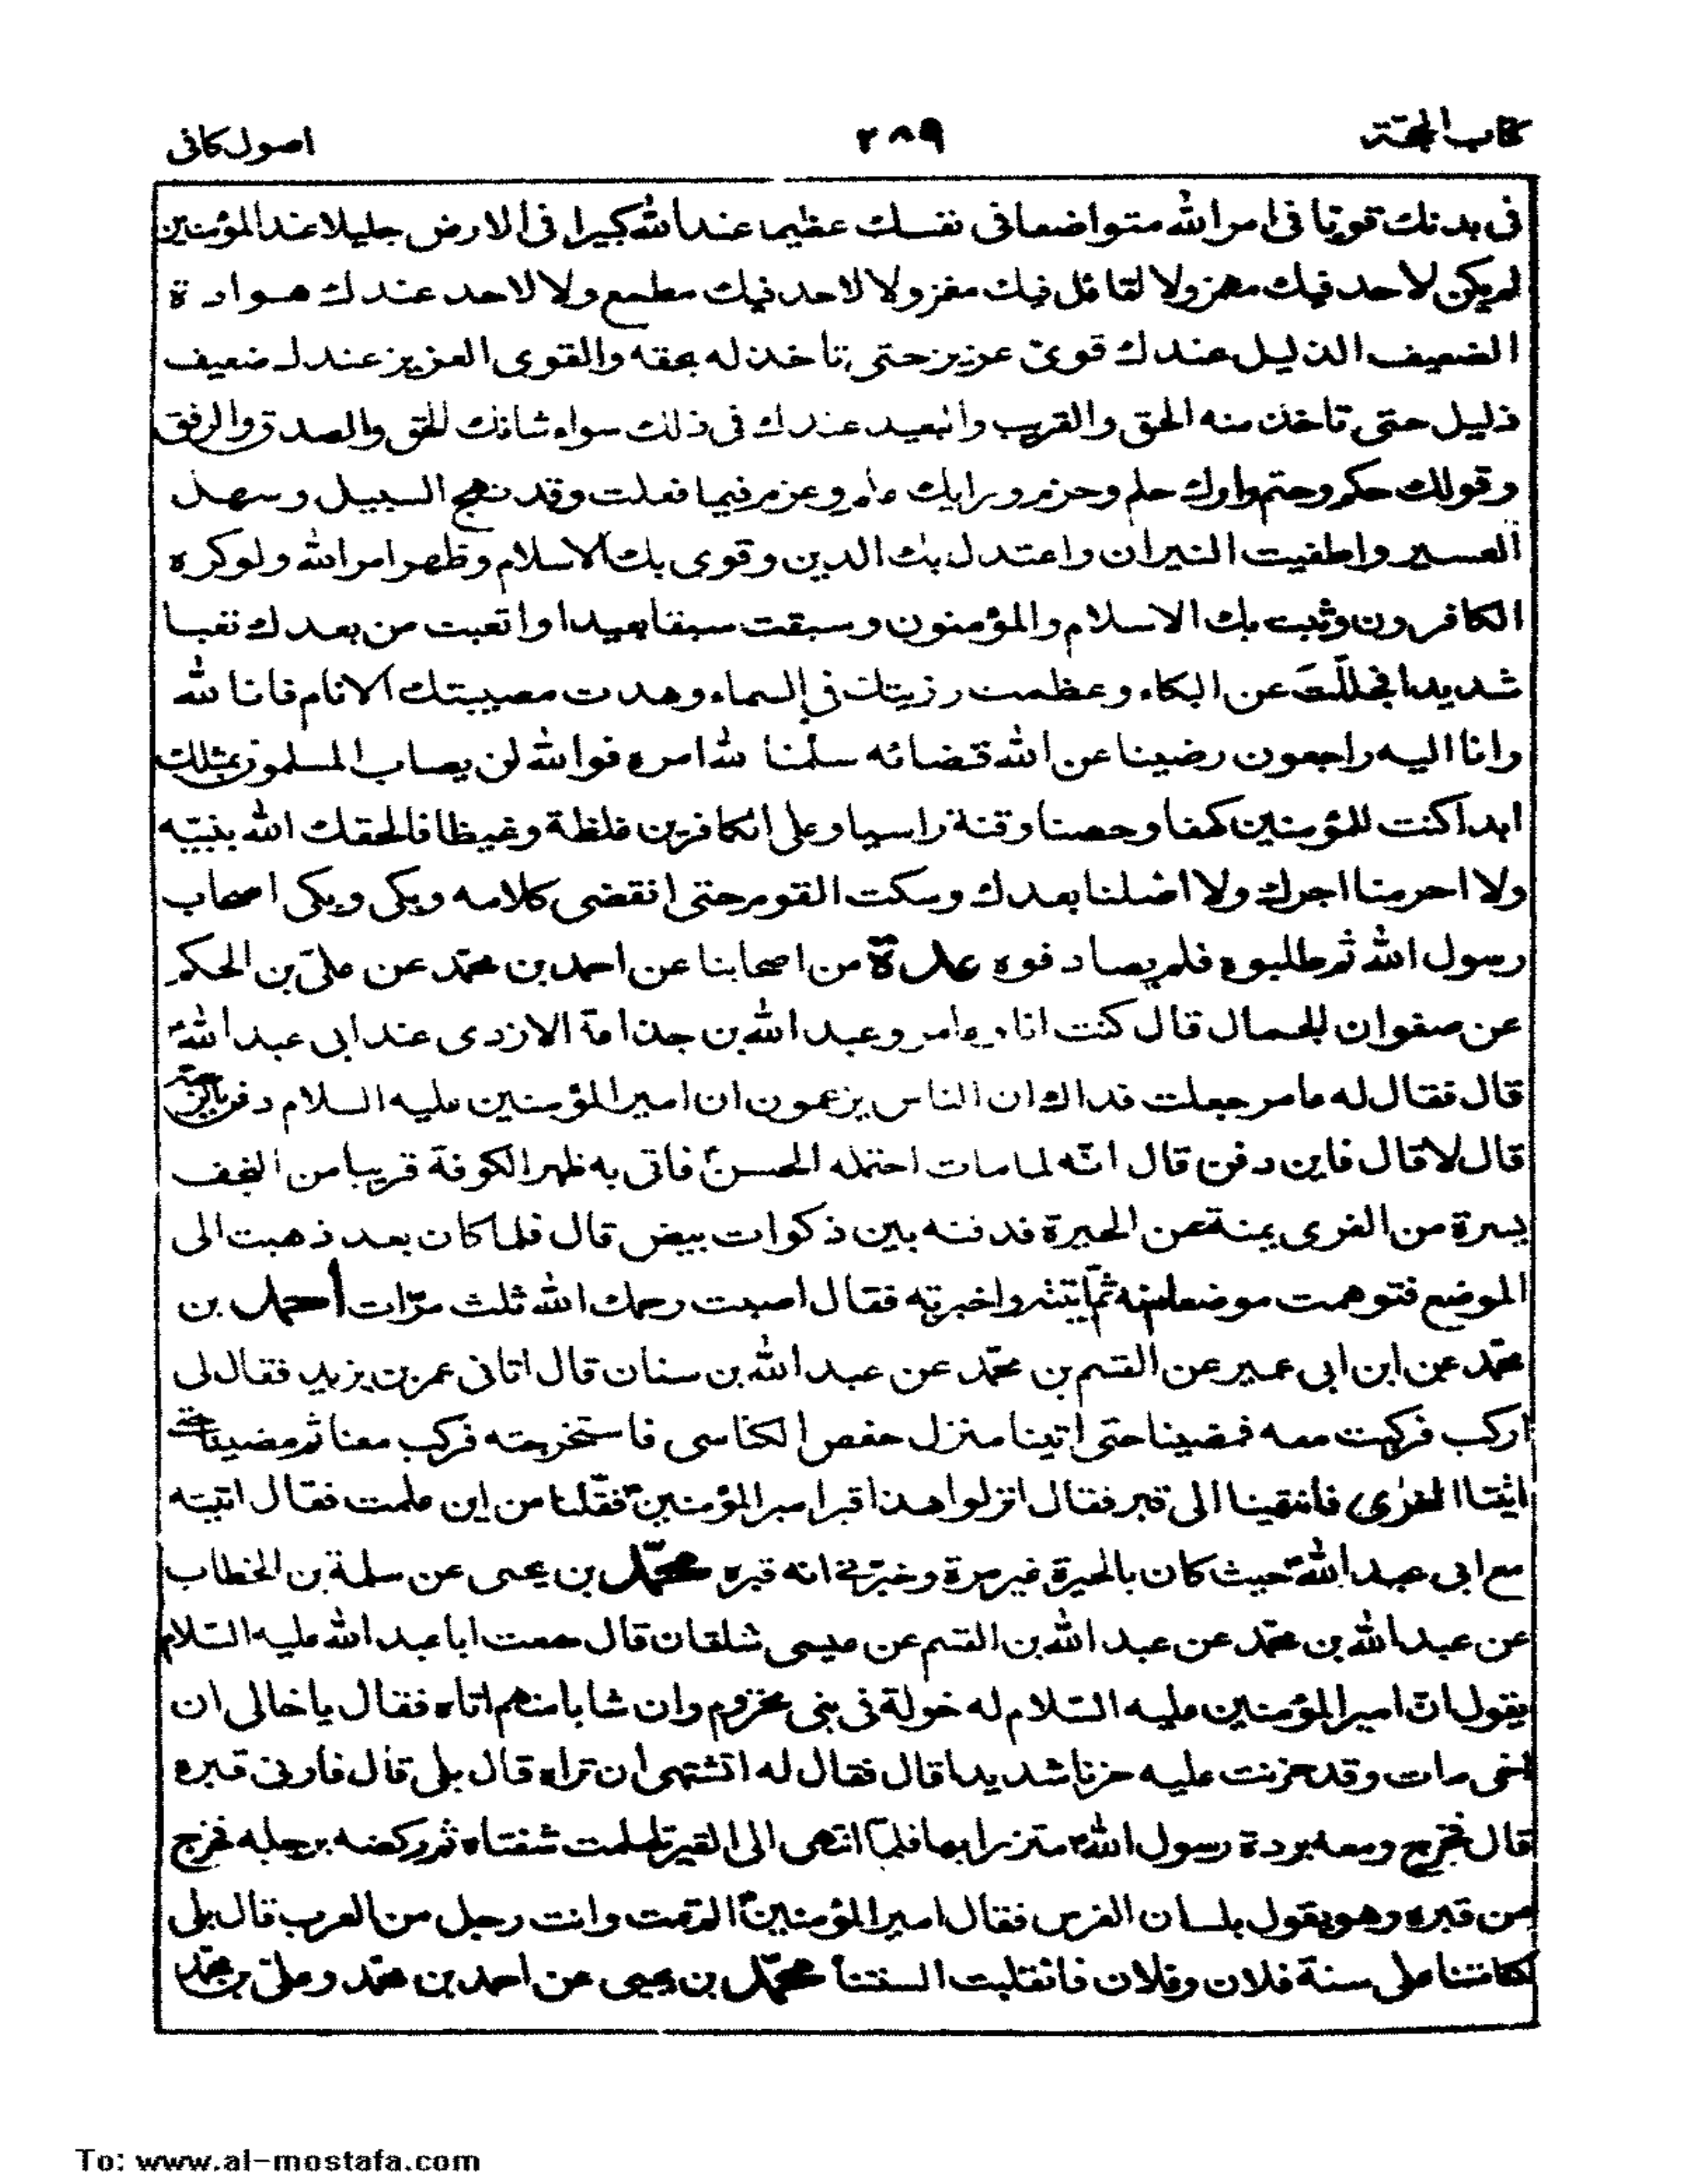 كتاب الحجة
٢٨٩
اصول كافى
فى بدنك قويا فى امر الله متواضعا فى نفسك عظيما عند الله كبيرا فى الارض جليلا عند المؤمنين
لم يكن لاحد فيك مهمز ولا لقائل فيك مغمز ولا لاحد فيك مطمع ولا لاحد عندك هوادة
الضعيف الذليل عندك قوىّ عزيز حتى تاخذ له بحقه والقوى العزيز عندك ضعيف
ذليل حتى تاخذ منه الحق والقريب والبعيد عندك فى ذلك سواء شانك الحق والصدق والرفق
وقولك حكم وحتم وامرك حلم وحزم ورايك علم وعزم فيما فعلت وقد نهج السبيل وسهل
العسير واطفيت النيران واعتدل بك الدين وقوى بك الاسلام وظهر امر الله ولو كره
الكافرون وثبت بك الاسلام والمؤمنون وسبقت سبقا بعيدا واتعبت من بعدك تعبا
شديدا فجللّتَ عن البكاء وعظمت رزيتك فى السماء وهدت مصيبتك الانام فانا لله
وانا اليه راجعون رضينا عن الله قضائه سلّمنا لله امره فوالله لن يصاب المسلمون بمثلك
ابدا كنت للمؤمنين كهفا وحصنا وقنة راسيا وعلى الكافرين غلظة وغيظا فالحقك الله بنبيّه
ولا احرمنا اجرك ولا اضلنا بعدك وسكت القوم حتى انقضى كلامه وبكى وبكى اصحاب
رسول الله ثم طلبوه فلم يصادفوه عدة من اصحابنا عن احمد بن محمّد عن علىّ بن الحكم
عن صفوان الجمال قال كنت انا وعامر وعبد الله بن جذاعة الازدى عند ابى عبد الله ع
قال فقال له عامر جعلت فداك ان الناس يزعمون ان امير المؤمنين عليه السلام دفن بالرحبة
قال لا قال فاين دفن قال انّه لما مات احتمله الحسن ع فاتى به ظهر الكوفة قريبا من النجف
يسرة من الغرى يمنة عن الحيرة فدفنه بين ذكوات بيض قال فلما كان بعد ذهبت الى
الموضع فتوهمت موضعا منه ثم اتيته واخبرته فقال اصبت رحمك الله ثلث مرّات أحمد بن
محمّد عن ابن ابى عمير عن القسم بن محمّد عن عبد الله بن سنان قال اتانى عمر بن يزيد فقال لى
اركب فركبت معه فمضينا حتى اتينا منزل حفص الكناسى فاستخرجته فركب معنا ثم مضينا حتى
اتينا الغرى فانتهينا الى قبر فقال انزلوا هذا قبر امير المؤمنين ع فقلنا من اين علمت فقال اتيته
مع ابى عبد الله ع حيث كان بالحيرة غير مرة وخبّرنى انه قبره محمّد بن يحيى عن سلمة بن الخطاب
عن عبد الله بن محمّد عن عبد الله بن القسم عن عيسى شلقان قال سمعت ابا عبد الله عليه السّلام
يقول انّ امير المؤمنين عليه السّلام له خولة فى بنى مخزوم وان شابا منهم اتاه فقال يا خالى ان
اخى مات وقد حزنت عليه حزنا شديدا قال فقال له اتشتهى ان تراه قال بلى قال فارنى قبره
قال فخرج ومعه بردة رسول الله ص متزرا بها فلمّا انتهى الى القبر تلملمت شفتاه ثم ركضه برجله فخرج
من قبره وهو يقول بلسان الفرس فقال امير المؤمنين ع الم تمت وانت رجل من العرب قال بلى
لكنا متنا على سنة فلان وفلان فانقلبت السنتنا محمّد بن يحيى عن احمد بن محمّد وعلىّ بن محمّد
To: www.al-mostafa.com